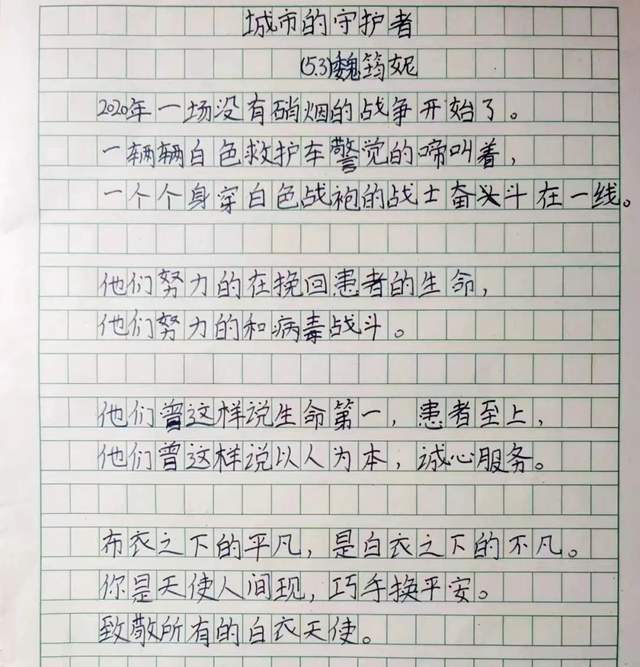 城市的守护者
(5.3)魏筠妮
2020年一场没有硝烟的战争开始了。
一辆辆白色救护车警觉的啼叫着，
一个个身穿白色战袍的战士奋斗在一线。
他们努力的在挽回患者的生命，
他们努力的和病毒战斗。
他们曾这样说生命第一，患者至上，
他们曾这样说以人为本，诚心服务。
布衣之下的平凡，是白衣之下的不凡。
你是天使人间现，巧手换平安。
致敬所有的白衣天使。